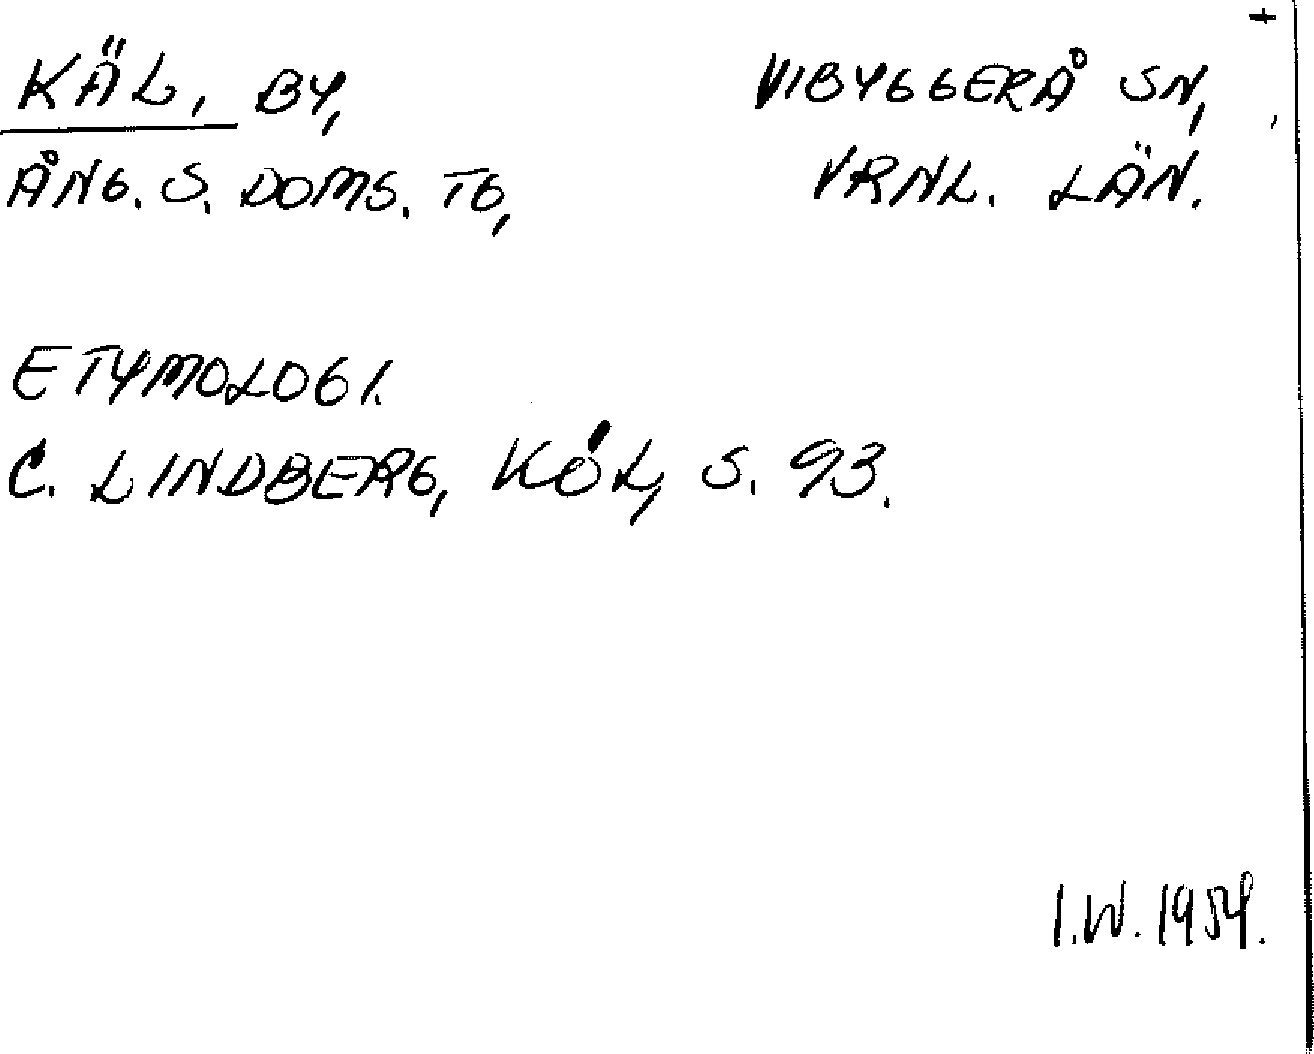 +
KÄL, BY, VIBYGGERÅ SN,
ÅNG. S. DOMS. TG, VRNL. LÄN.
ETYMOLOGI.
C. LINDBERG, KÖL, S. 93.
I.W. 1954.